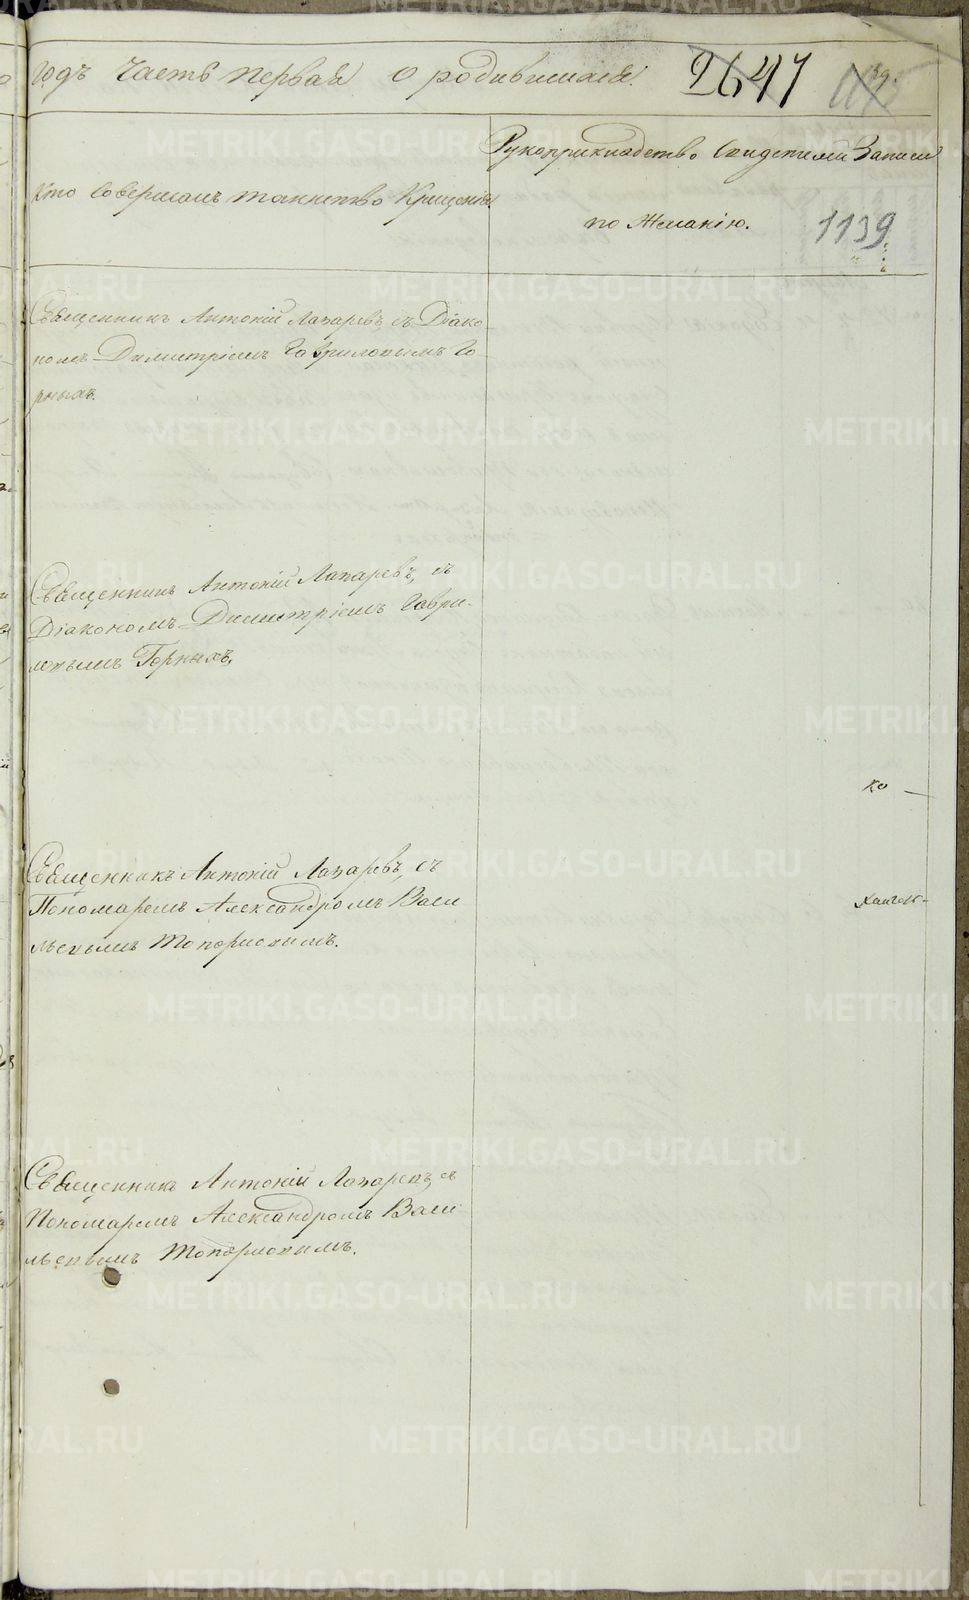 годъ Часть первая о родившихся. 2647
Рукоприкладство свидетелей записи
по Желанію. 1139
Кто совершалъ таинство Крещенія
Священникъ Антоній Лазаревъ съ Діако-
номъ Димитріемъ Гавриловымъ Го-
рныхъ.
Священникъ Антоній Лазаревъ, съ
Діакономъ Димитріемъ Гаври-
ловымъ Горныхъ.
Ко —
Священникъ Антоній Лазаревъ, съ
Пономаремъ Александромъ Васи
льевымъ Топорковымъ.
Священникъ Антоній Лазаревъ, съ
Пономаремъ Александромъ Васи
льевымъ Топорковымъ.
METRIKI.GASO-URAL.RU